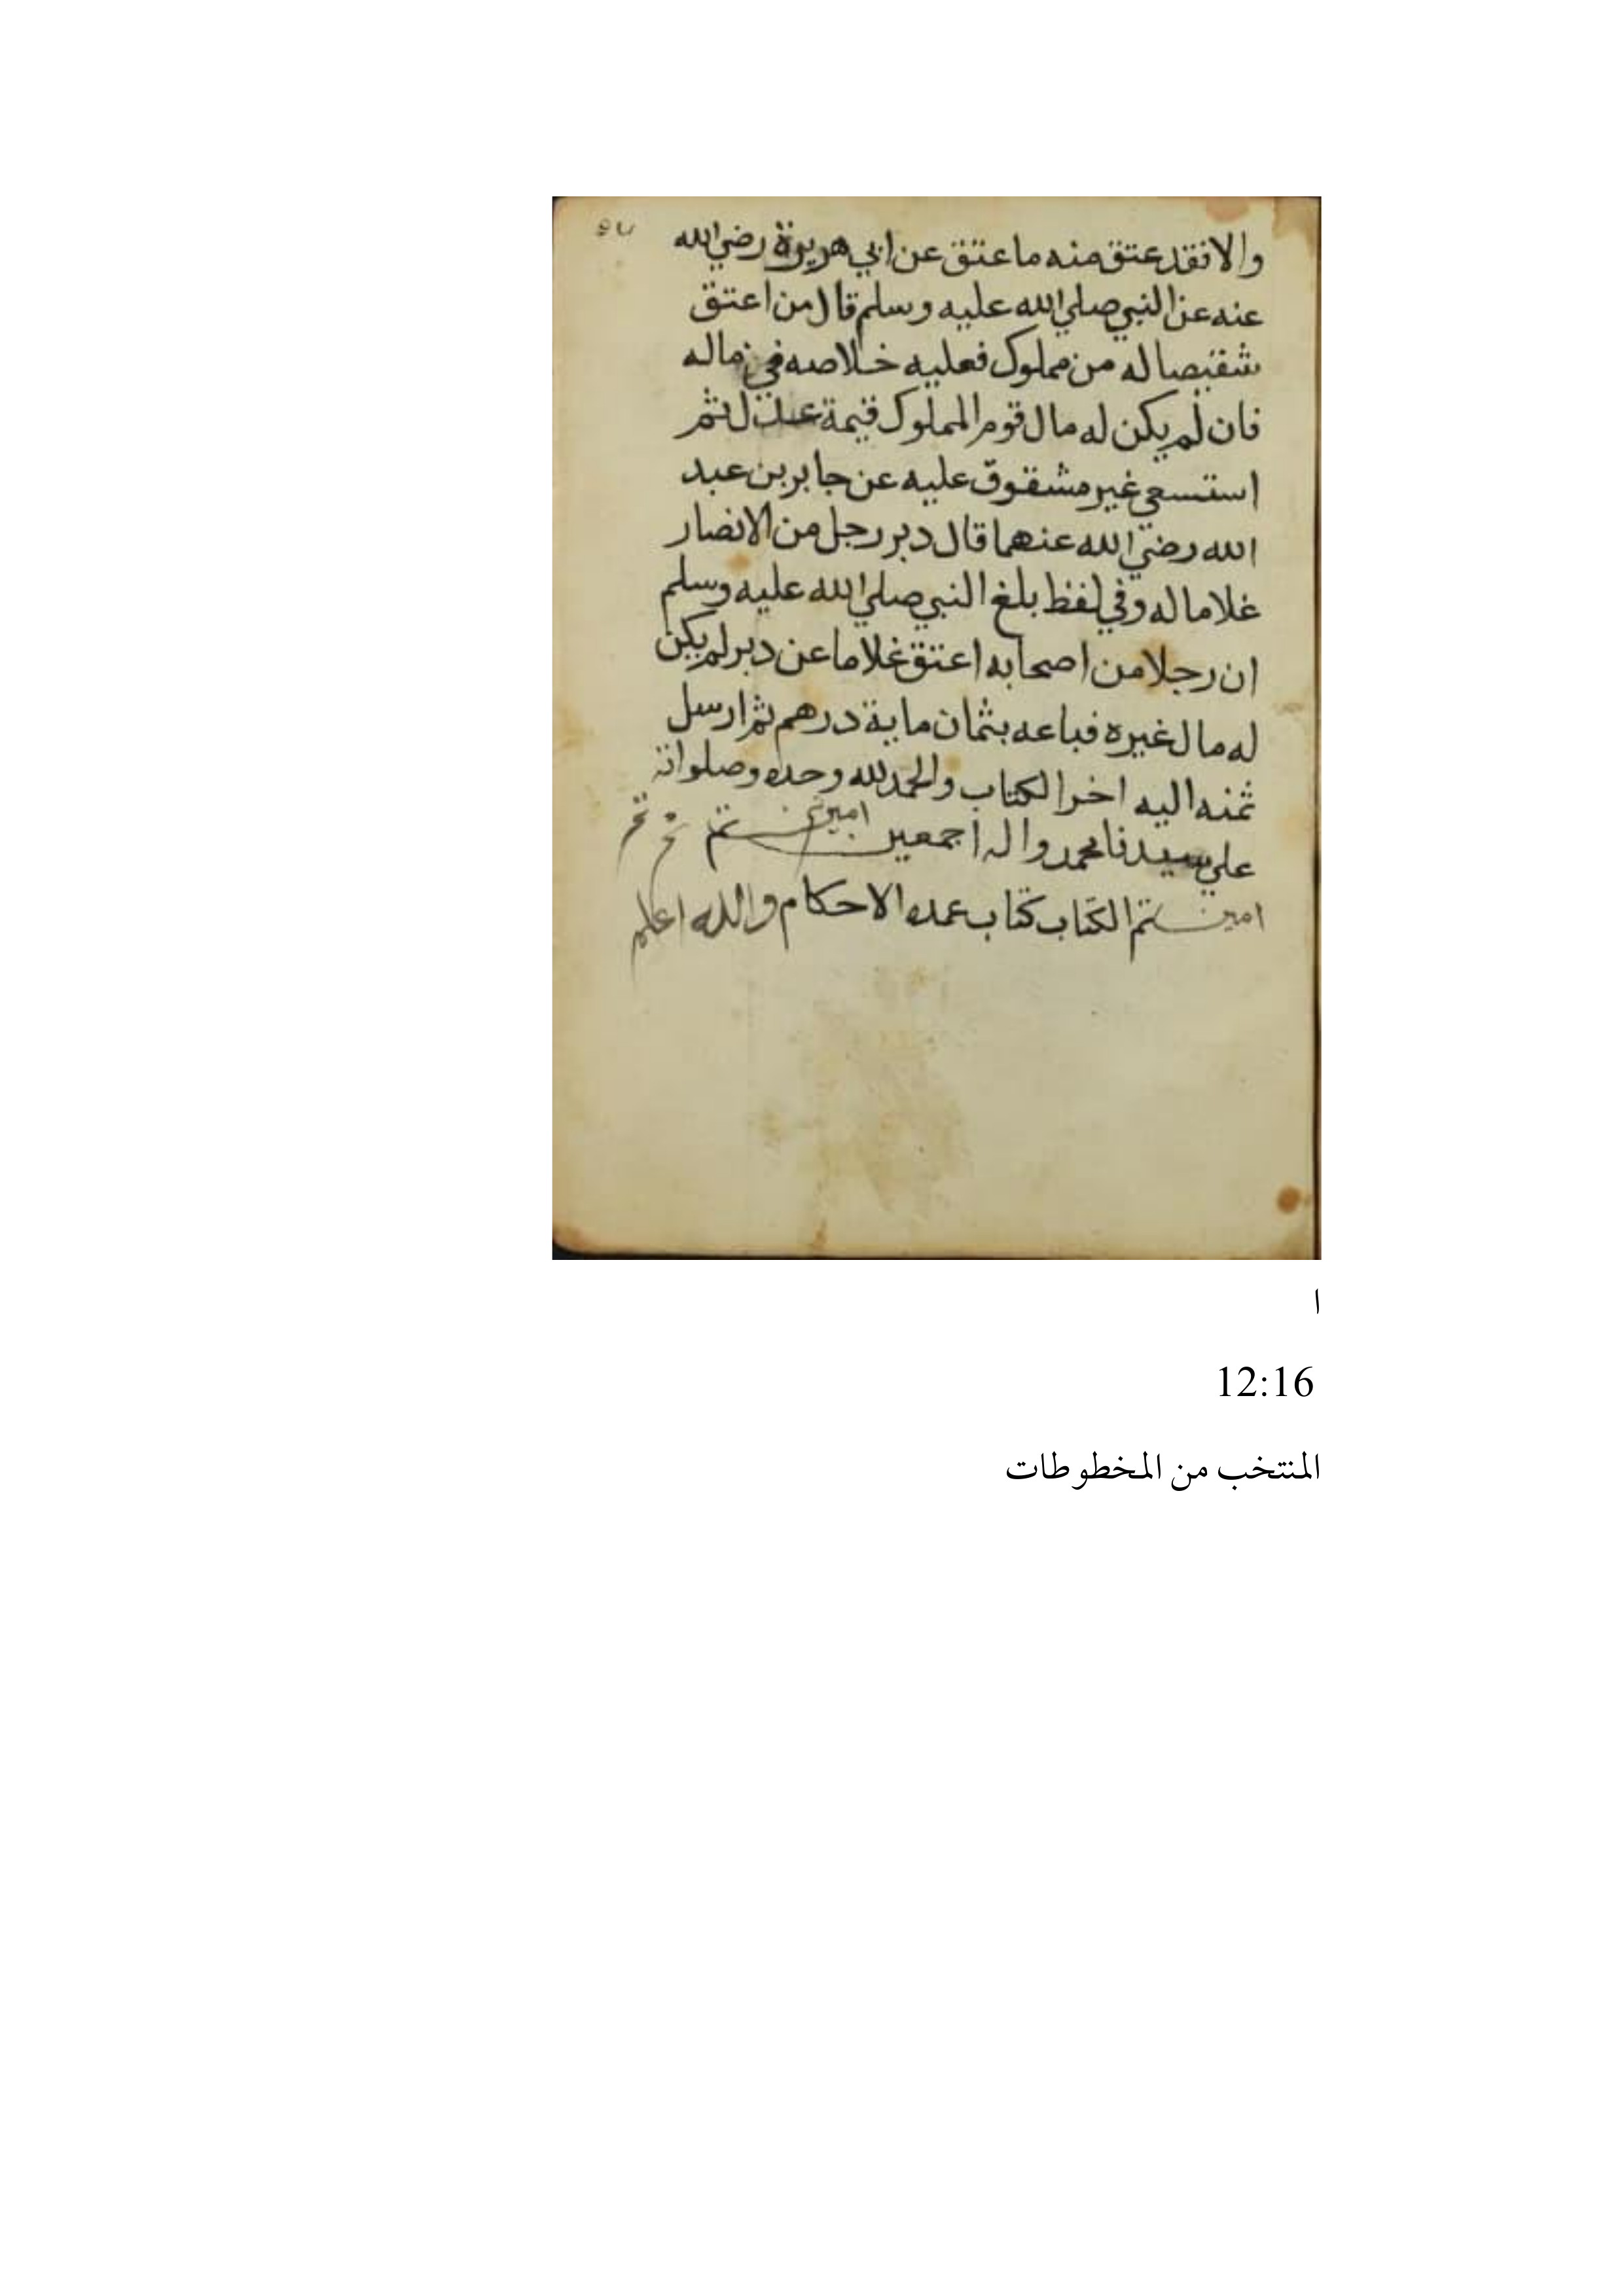 والا فقد عتق منه ما عتق عن ابي هريرة رضي الله
عنه عن النبي صلي الله عليه وسلم قال من اعتق
شقيصا له من مملوك فعليه خلاصه في ماله
فان لم يكن له مال قوم المملوك قيمة عدل ثم
استسعي غير مشقوق عليه عن جابر بن عبد
الله رضي الله عنهما قال دبر رجل من الانصار
غلاما له وفي لفظ بلغ النبي صلي الله عليه وسلم
ان رجلا من اصحابه اعتق غلاما عن دبر لم يكن
له مال غيره فباعه بثمان ماية درهم ثم ارسل
ثمنه اليه اخر الكتاب والحمد لله وحده وصلواته
علي سيدنا محمد واله اجمعين امين تم تم تم
امين تم الكتاب كتاب عمده الاحكام والله اعلم
ا
12:16
المنتخب من المخطوطات